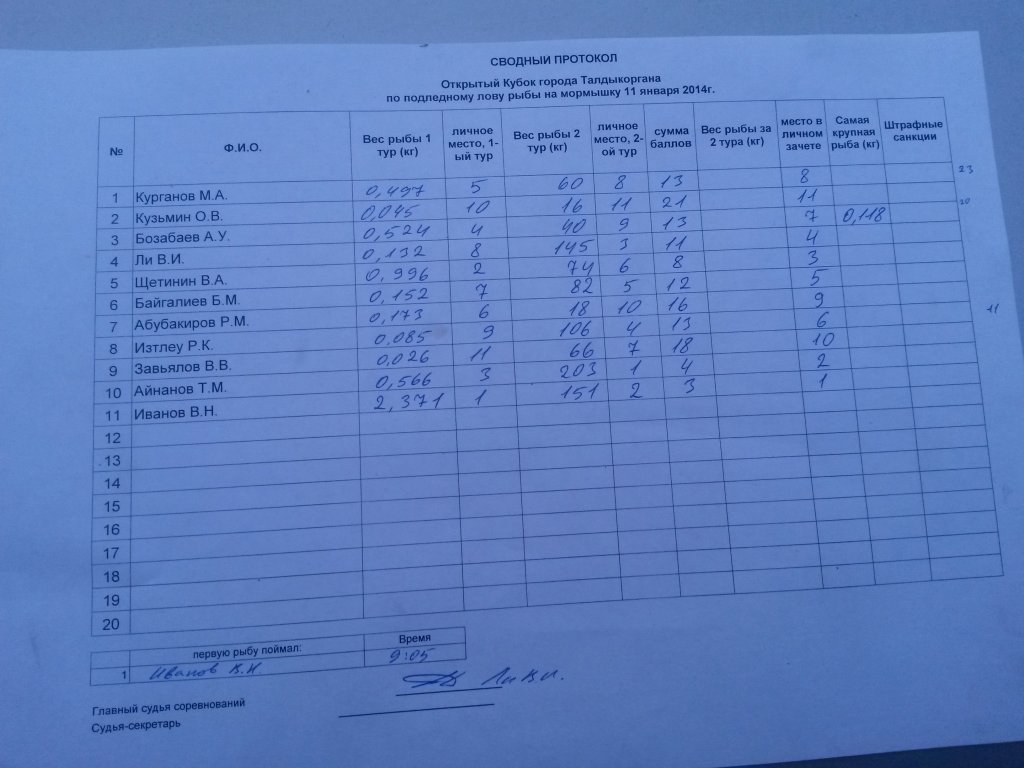 СВОДНЫЙ ПРОТОКОЛ
Открытый Кубок города Талдыкоргана
по подледному лову рыбы на мормышку 11 января 2014г.
№ Ф.И.О. Вес рыбы 1 тур (кг) личное место, 1-ый тур Вес рыбы 2 тур (кг) личное место, 2-ой тур сумма баллов Вес рыбы за 2 тура (кг) место в личном зачете Самая крупная рыба (кг) Штрафные санкции
1 Курганов М.А. 0,497 5 60 8 13 8 23
2 Кузьмин О.В. 0,045 10 16 11 21 11 20
3 Бозабаев А.У. 0,524 4 40 9 13 7 0,118
4 Ли В.И. 0,132 8 145 3 11 4
5 Щетинин В.А. 0,996 2 74 6 8 3
6 Байгалиев Б.М. 0,152 7 82 5 12 5
7 Абубакиров Р.М. 0,173 6 18 10 16 9 11
8 Изтлеу Р.К. 0,085 9 106 4 13 6
9 Завьялов В.В. 0,026 11 66 7 18 10
10 Айнанов Т.М. 0,566 3 203 1 4 2
11 Иванов В.Н. 2,371 1 151 2 3 1
12
13
14
15
16
17
18
19
20
первую рыбу поймал: Время
1 Иванов В.Н. 9:05
Главный судья соревнований Ли В.И.
Судья-секретарь